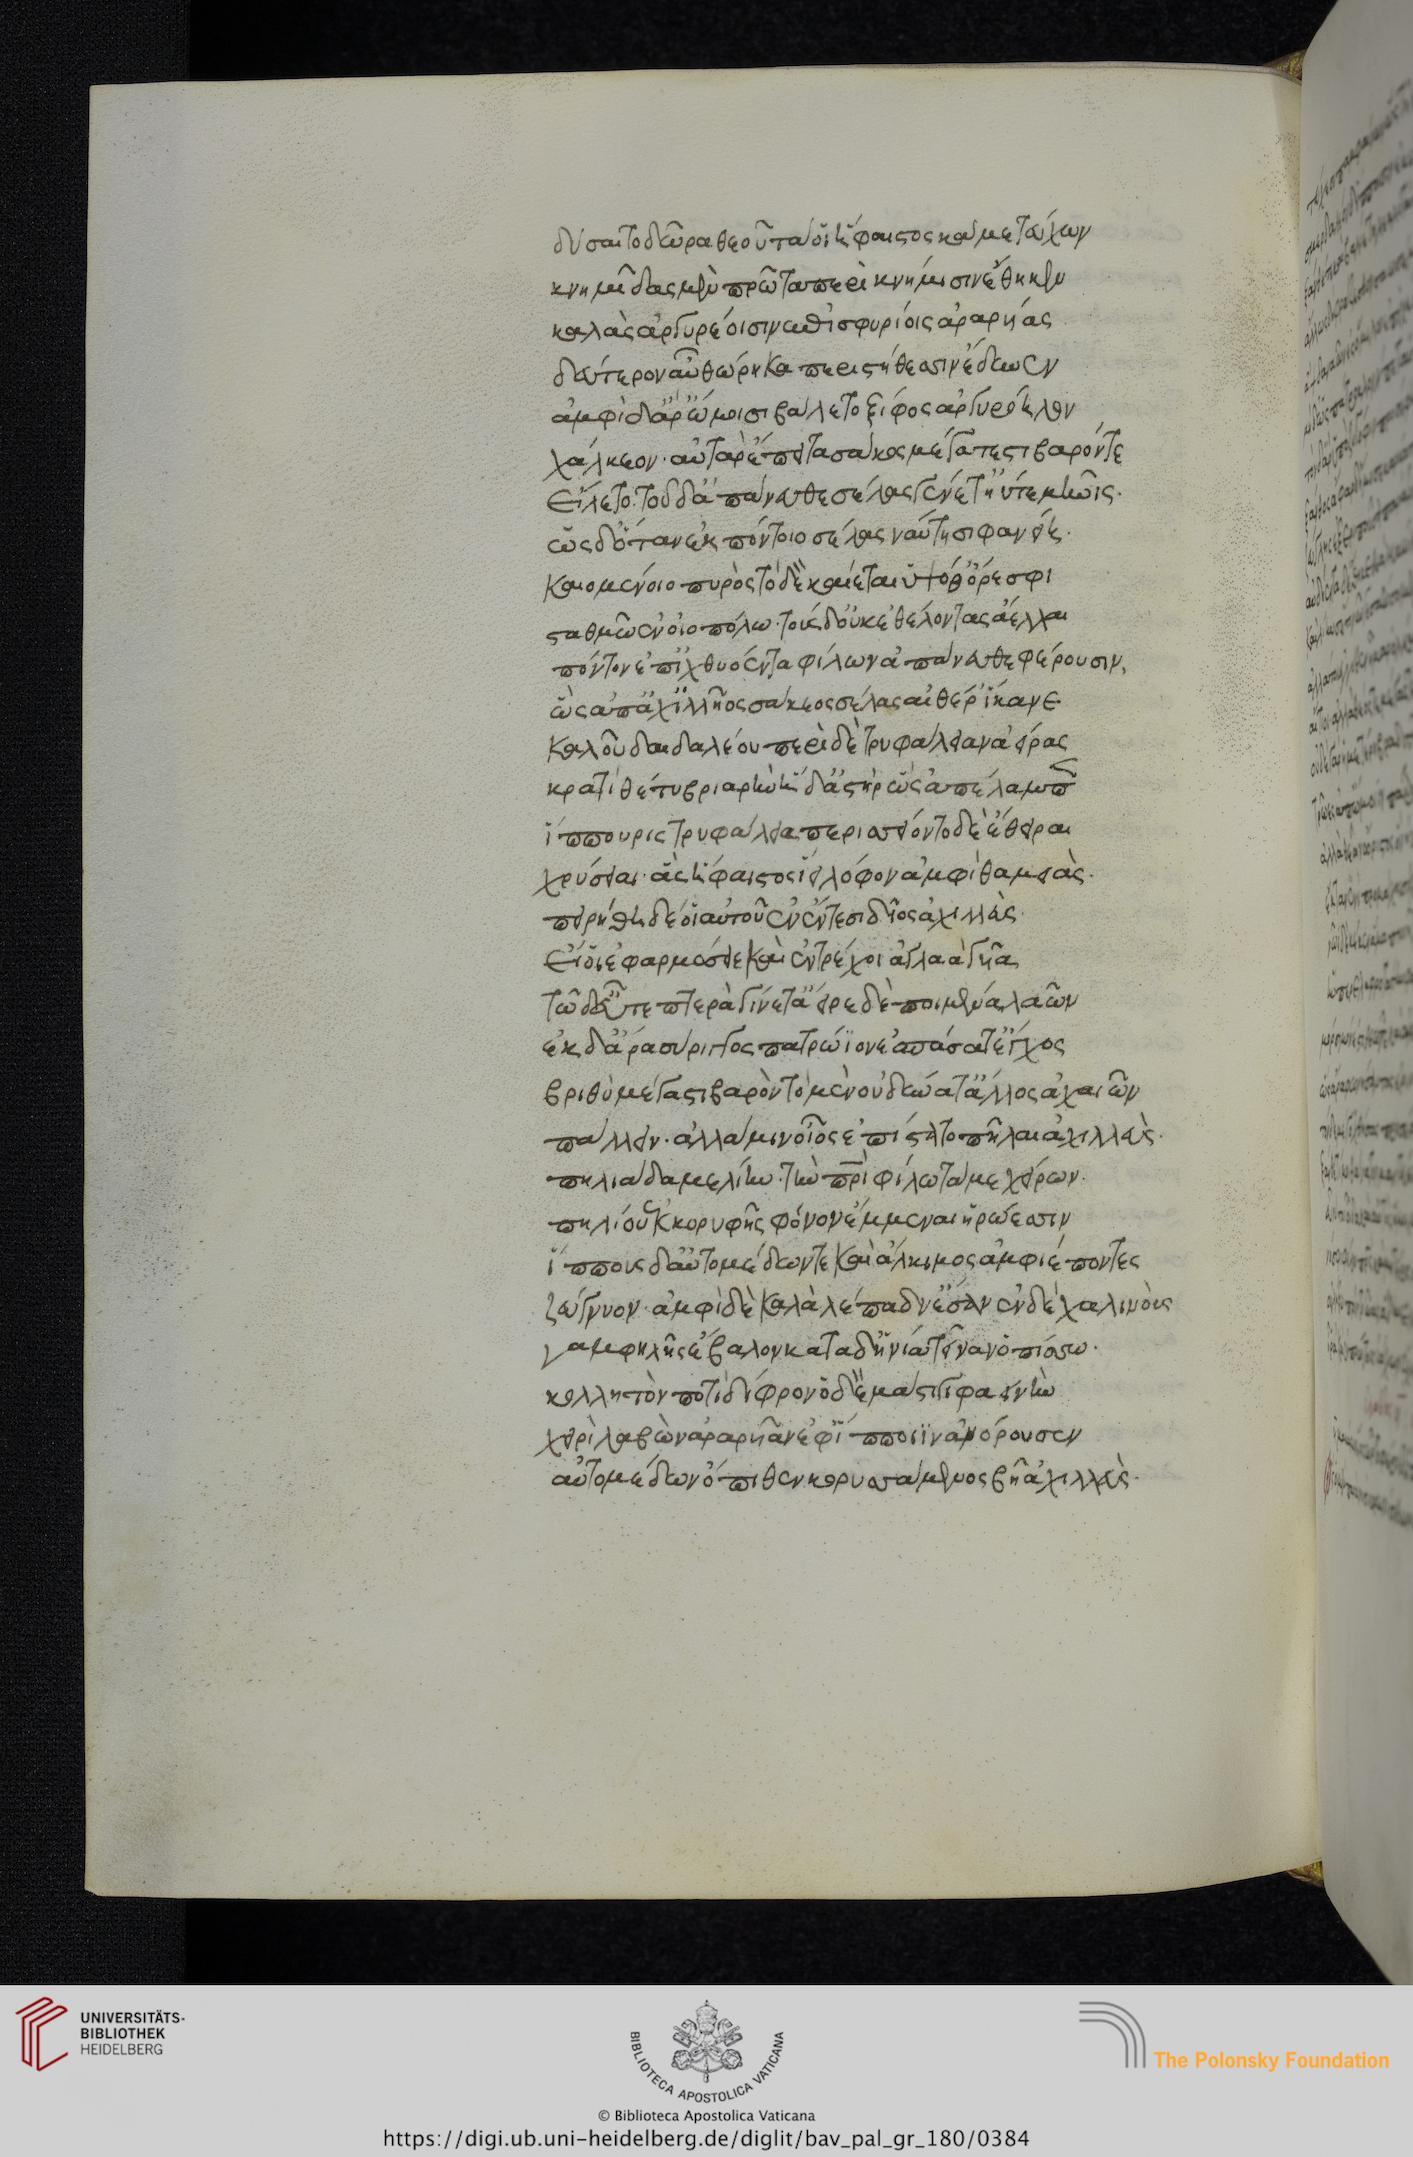 δύσατο δῶρα θεοῦ τά οἱ ἥφαιστος κάμε τεύχων
κνημῖδας μὲν πρῶτα περὶ κνήμισιν ἔθηκεν
καλὰς ἀργυρέοισιν ἐπισφυρίοις ἀραρυίας
δεύτερον αὖ θώρηκα περὶ στήθεσσιν ἔδυνεν
ἀμφὶ δ' ἄρ' ὤμοισι βάλετο ξίφος ἀργυρόηλον
χάλκεον· αὐτὰρ ἔπειτα σάκος μέγα τε στιβαρόν τε
εἵλετο· τοῦ δ' ἀπάνευθε σέλας γένετ' ἠΰτε μήνης·
ὡς δ' ὅταν ἐκ πόντοιο σέλας ναύτησι φανείη·
καιομένοιο πυρὸς τὸ δὲ καίεται ὑψόθ' ὄρεσφι
σταθμῶ ἐν οἰοπόλω· τοὺς δ' οὐκ ἐθέλοντας ἄελλαι
πόντον ἐπ' ἰχθυόεντα φίλων ἀπάνευθε φέρουσιν,
ὣς ἀπ' ἀχιλλῆος σάκεος σέλας αἰθέρ' ἵκανε
καλοῦ δαιδαλέου περὶ δὲ τρυφάλειαν ἀείρας
κρατὶ θέτο βριαρὴν ἡ δ' ἀστὴρ ὣς ἀπέλαμπεν
ἵππουρις τρυφάλεια περισσείοντο δὲ ἔθειραι
χρύσειαι· ἃς ἥφαιστος ἵει λόφον ἀμφὶ θαμειὰς·
πειρήθη δέ οἱ αὐτοῦ ἐν ἔντεσι δῖος ἀχιλλεὺς·
εἴ οἱ ἐφαρμόσειε καὶ ἐντρέχοι ἀγλαὰ γυῖα
τῶ δ' εὖτε πτερὰ γίνετ' ἄειρε δὲ ποιμένα λαῶν
ἐκ δ' ἄρα σύριγγος πατρώϊον ἐσπάσατ' ἔγχος
βριθὺ μέγα στιβαρὸν τὸ μὲν οὐ δύνατ' ἄλλος ἀχαιῶν
πάλλειν· ἀλλά μιν οἶος ἐπίστατο πῆλαι ἀχιλλεὺς·
πηλιάδα μελίην· τὴν πατρὶ φίλω τάμε χείρων·
πηλίου ἐκ κορυφῆς φόνον ἔμμεναι ἡρώεσσιν
ἵππους δ' αὐτομέδων τε καὶ ἄλκιμος ἀμφιέποντες
ζεύγνυον· ἀμφὶ δὲ καλὰ λέπαδν' ἕσαν ἐν δὲ χαλινοὺς
γαμφηλῇς ἔβαλον κατὰ δ' ἡνία τεῖναν ὀπίσσω·
κολλητὸν ποτὶ δίφρον ὁ δὲ μάστιγα φαεινὴν
χειρὶ λαβὼν ἀραρυῖαν ἐφ' ἵπποιϊν ἀνόρουσεν
αὐτομέδων ὄπιθεν κορυσσάμενος βῆ ἀχιλλεὺς·
UNIVERSITÄTS-
BIBLIOTHEK
HEIDELBERG
BIBLIOTECA APOSTOLICA VATICANA
The Polonsky Foundation
© Biblioteca Apostolica Vaticana
https://digi.ub.uni-heidelberg.de/diglit/bav_pal_gr_180/0384